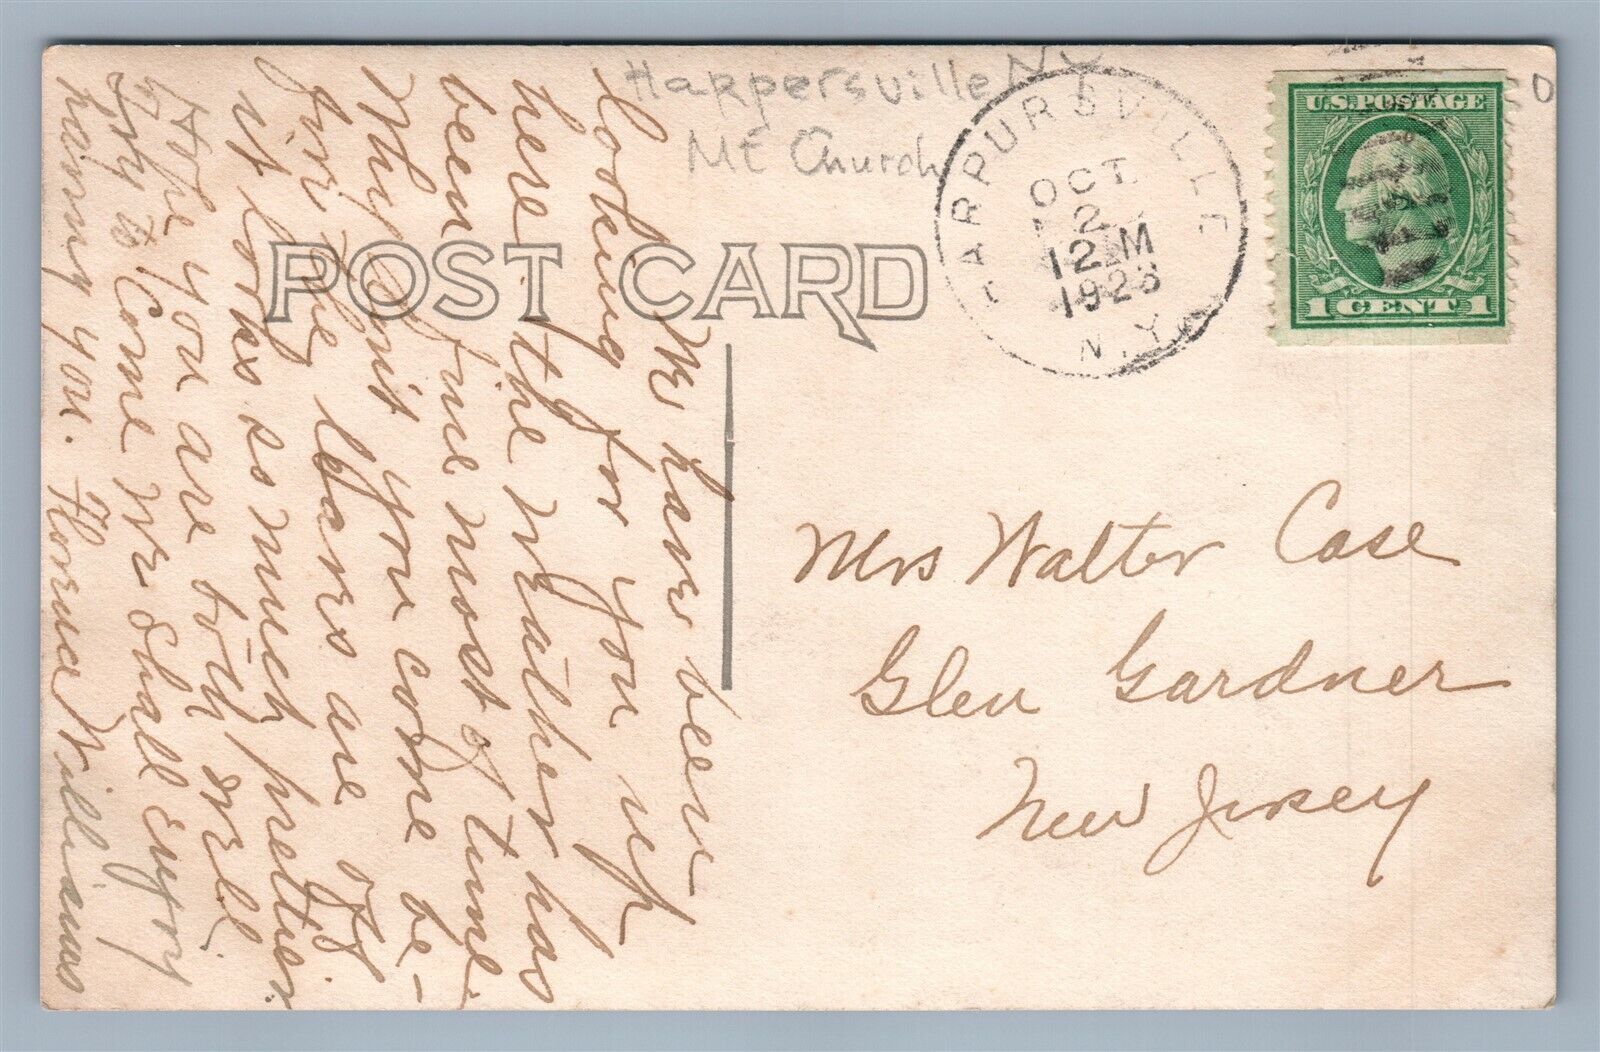 Harpersville NY
Mt Church
POST CARD
HARPURSVILLE
OCT.
2
12 M
1923
N.Y.
U.S. POSTAGE
1 CENT 1
We have been
looking for you up
here the weather has
been fine most of time
Why dint you come be-
fore the leaves are off
it looks so much prettier
Hope you are both well
try to Come we shall Enjoy
having you. Florence Williams
Mrs Walter Case
Glen Gardner
New Jersey